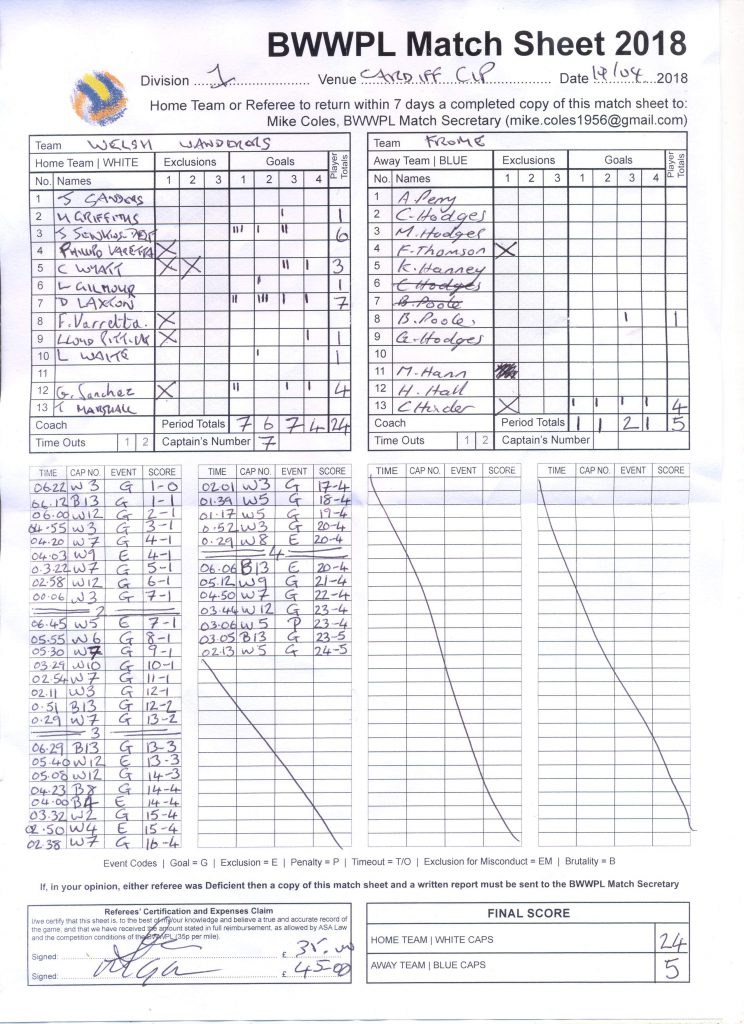 BWWPL Match Sheet 2018
Division 1 Venue CARDIFF CIP Date 14/04 2018
Home Team or Referee to return within 7 days a completed copy of this match sheet to:
Mike Coles, BWWPL Match Secretary (mike.coles1956@gmail.com)
Team WELSH WANDERERS
Home Team | WHITE Exclusions Goals Player Totals
No. Names 1 2 3 1 2 3 4
1 S SANDERS
2 M GRIFFITHS I 1
3 S JENKINS III I II 6
4 PHILLIPO VARETTA X
5 C WYATT X X II I 3
6 L GILMOUR I 1
7 D LAXTON II III I I 7
8 F. Varretta. X
9 LLOYD X I 1
10 L WAITE I 1
11
12 G. Sanchez X II I I 4
13 T MARSHALL
Coach Period Totals 7 6 7 4 24
Time Outs 1 2 Captain's Number 7
Team FROME
Away Team | BLUE Exclusions Goals Player Totals
No. Names 1 2 3 1 2 3 4
1 A. Perry
2 C. Hodges
3 M. Hodges
4 F. Thomson X
5 K. Hanney
6 C Hodges
7 B. Poole
8 B. Poole. I 1
9 G. Hodges
10
11 M. Hann
12 H. Hall
13 C Hinder X I I I I 4
Coach Period Totals 1 1 2 1 5
Time Outs 1 2 Captain's Number
TIME CAP NO. EVENT SCORE
06.22 W3 G 1-0
06.12 B13 G 1-1
06.00 W12 G 2-1
04.55 W3 G 3-1
04.20 W7 G 4-1
04.03 W9 E 4-1
03.22 W7 G 5-1
02.58 W12 G 6-1
00.06 W3 G 7-1
2
06.45 W5 E 7-1
05.55 W6 G 8-1
05.30 W7 G 9-1
03.29 W10 G 10-1
02.54 W7 G 11-1
02.11 W3 G 12-1
0.51 B13 G 12-2
0.29 W7 G 13-2
3
06.29 B13 G 13-3
05.40 W12 E 13-3
05.08 W12 G 14-3
04.23 B8 G 14-4
04.00 B4 E 14-4
03.32 W2 G 15-4
02.50 W4 E 15-4
02.38 W7 G 16-4
TIME CAP NO. EVENT SCORE
02.01 W3 G 17-4
01.39 W5 G 18-4
01.17 W5 G 19-4
0.52 W3 G 20-4
0.29 W8 E 20-4
4
06.06 B13 E 20-4
05.12 W9 G 21-4
04.50 W7 G 22-4
03.44 W12 G 23-4
03.06 W5 P 23-4
03.05 B13 G 23-5
02.13 W5 G 24-5
TIME CAP NO. EVENT SCORE
TIME CAP NO. EVENT SCORE
Event Codes | Goal = G | Exclusion = E | Penalty = P | Timeout = T/O | Exclusion for Misconduct = EM | Brutality = B
If, in your opinion, either referee was Deficient then a copy of this match sheet and a written report must be sent to the BWWPL Match Secretary
Referees' Certification and Expenses Claim
I/we certify that this sheet is, to the best of my/our knowledge and believe a true and accurate record of
the game, and that we have received the amount stated in full reimbursement, as allowed by ASA Law
and the competition conditions of the BWWPL (35p per mile).
Signed: £ 35.00
Signed: £ 45.00
FINAL SCORE
HOME TEAM | WHITE CAPS 24
AWAY TEAM | BLUE CAPS 5